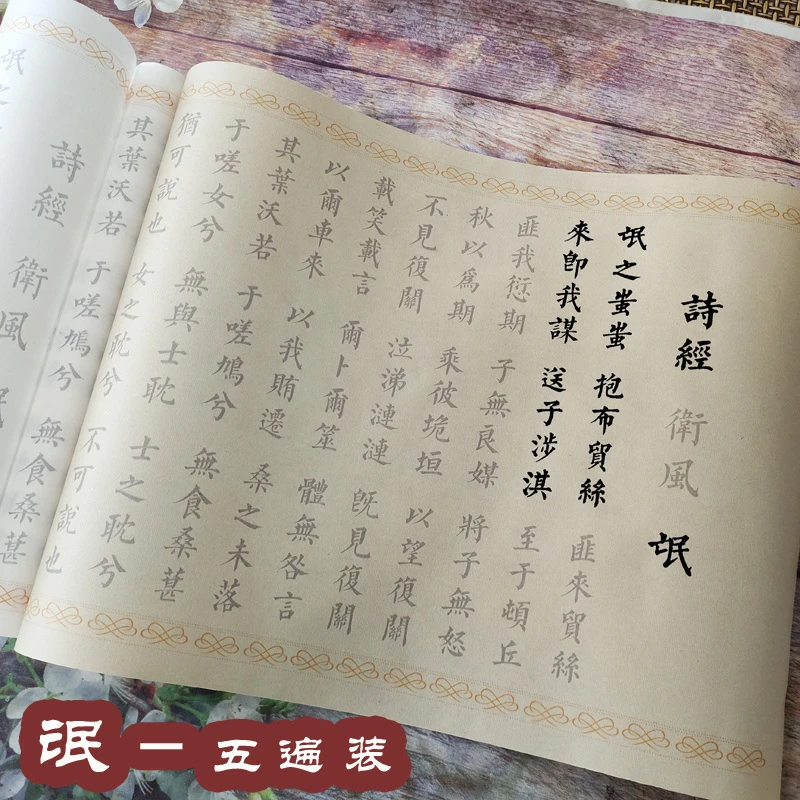 詩經 衛風 氓
氓之蚩蚩 抱布貿絲 匪來貿絲
來卽我謀 送子涉淇 至于頓丘
匪我愆期 子無良媒 將子無怒
秋以爲期 乘彼垝垣 以望復關
不見復關 泣涕漣漣 旣見復關
載笑載言 爾卜爾筮 體無咎言
以爾車來 以我賄遷 桑之未落
其葉沃若 于嗟鳩兮 無食桑葚
于嗟女兮 無與士耽 士之耽兮
猶可說也 女之耽兮 不可說也
其葉沃若 于嗟鳩兮 無食桑葚
詩經 衛風 氓
氓之
氓一五遍装